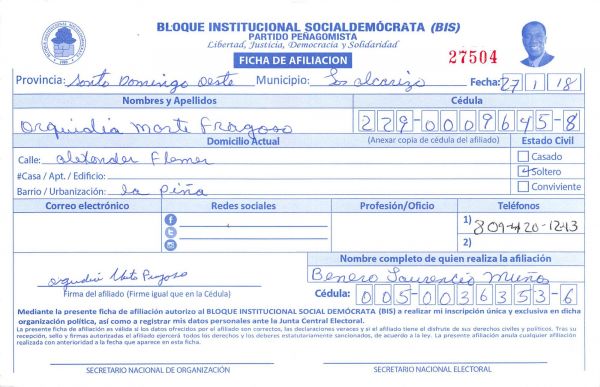 BLOQUE INSTITUCIONAL SOCIALDEMÓCRATA (BIS)
PARTIDO PEÑAGOMISTA
Libertad, Justicia, Democracia y Solidaridad
FICHA DE AFILIACION
27504
Provincia: Santo Domingo Oeste Municipio: Los alcarizo Fecha: 27/1/18
Nombres y Apellidos Cédula
Orquidia Marte Fragoso 229-0009645-8
Domicilio Actual (Anexar copia de cédula del afiliado) Estado Civil
Calle: alexander Flemer Casado
#Casa / Apt. / Edificio: Soltero
Barrio / Urbanización: la Piña Conviviente
Correo electrónico Redes sociales Profesión/Oficio Teléfonos
1) 809-420-1243
2)
Nombre completo de quien realiza la afiliación
Orquidia Marte Fragoso Benero Laurencio Muñoz
Firma del afiliado (Firme igual que en la Cédula) Cédula: 005-0036353-6
Mediante la presente ficha de afiliación autorizo al BLOQUE INSTITUCIONAL SOCIAL DEMÓCRATA (BIS) a realizar mi inscripción única y exclusiva en dicha
organización política, así como a registrar mis datos personales ante la Junta Central Electoral.
La presente ficha de afiliación es válida si los datos ofrecidos por el afiliado son correctos, las declaraciones veraces y si el afiliado tiene el disfrute de sus derechos civiles y políticos. Tras su
recepción, sello y firmas autorizadas el afiliado ejercerá todos los derechos y los deberes estatutariamente sancionados, de acuerdo a la ley. La presente afiliación anula cualquier afiliación
realizada con anterioridad a la fecha que aparece en esta ficha.
SECRETARIO NACIONAL DE ORGANIZACIÓN SECRETARIO NACIONAL ELECTORAL